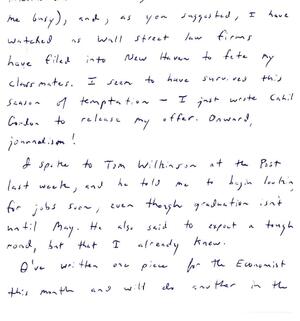 me busy), and, as you suggested, I have
watched as Wall Street law firms
have filed into New Haven to fete my
classmates. I seem to have survived this
season of temptation – I just wrote Cahil
Gordon to release my offer. Onward,
journalism!
I spoke to Tom Wilkinson at the Post
last week, and he told me to begin lookin
for jobs soon, even though graduation isn't
until May. He also said to expect a tough
road, but that I already knew.
I've written one piece for the Economist
this month and will do another in the